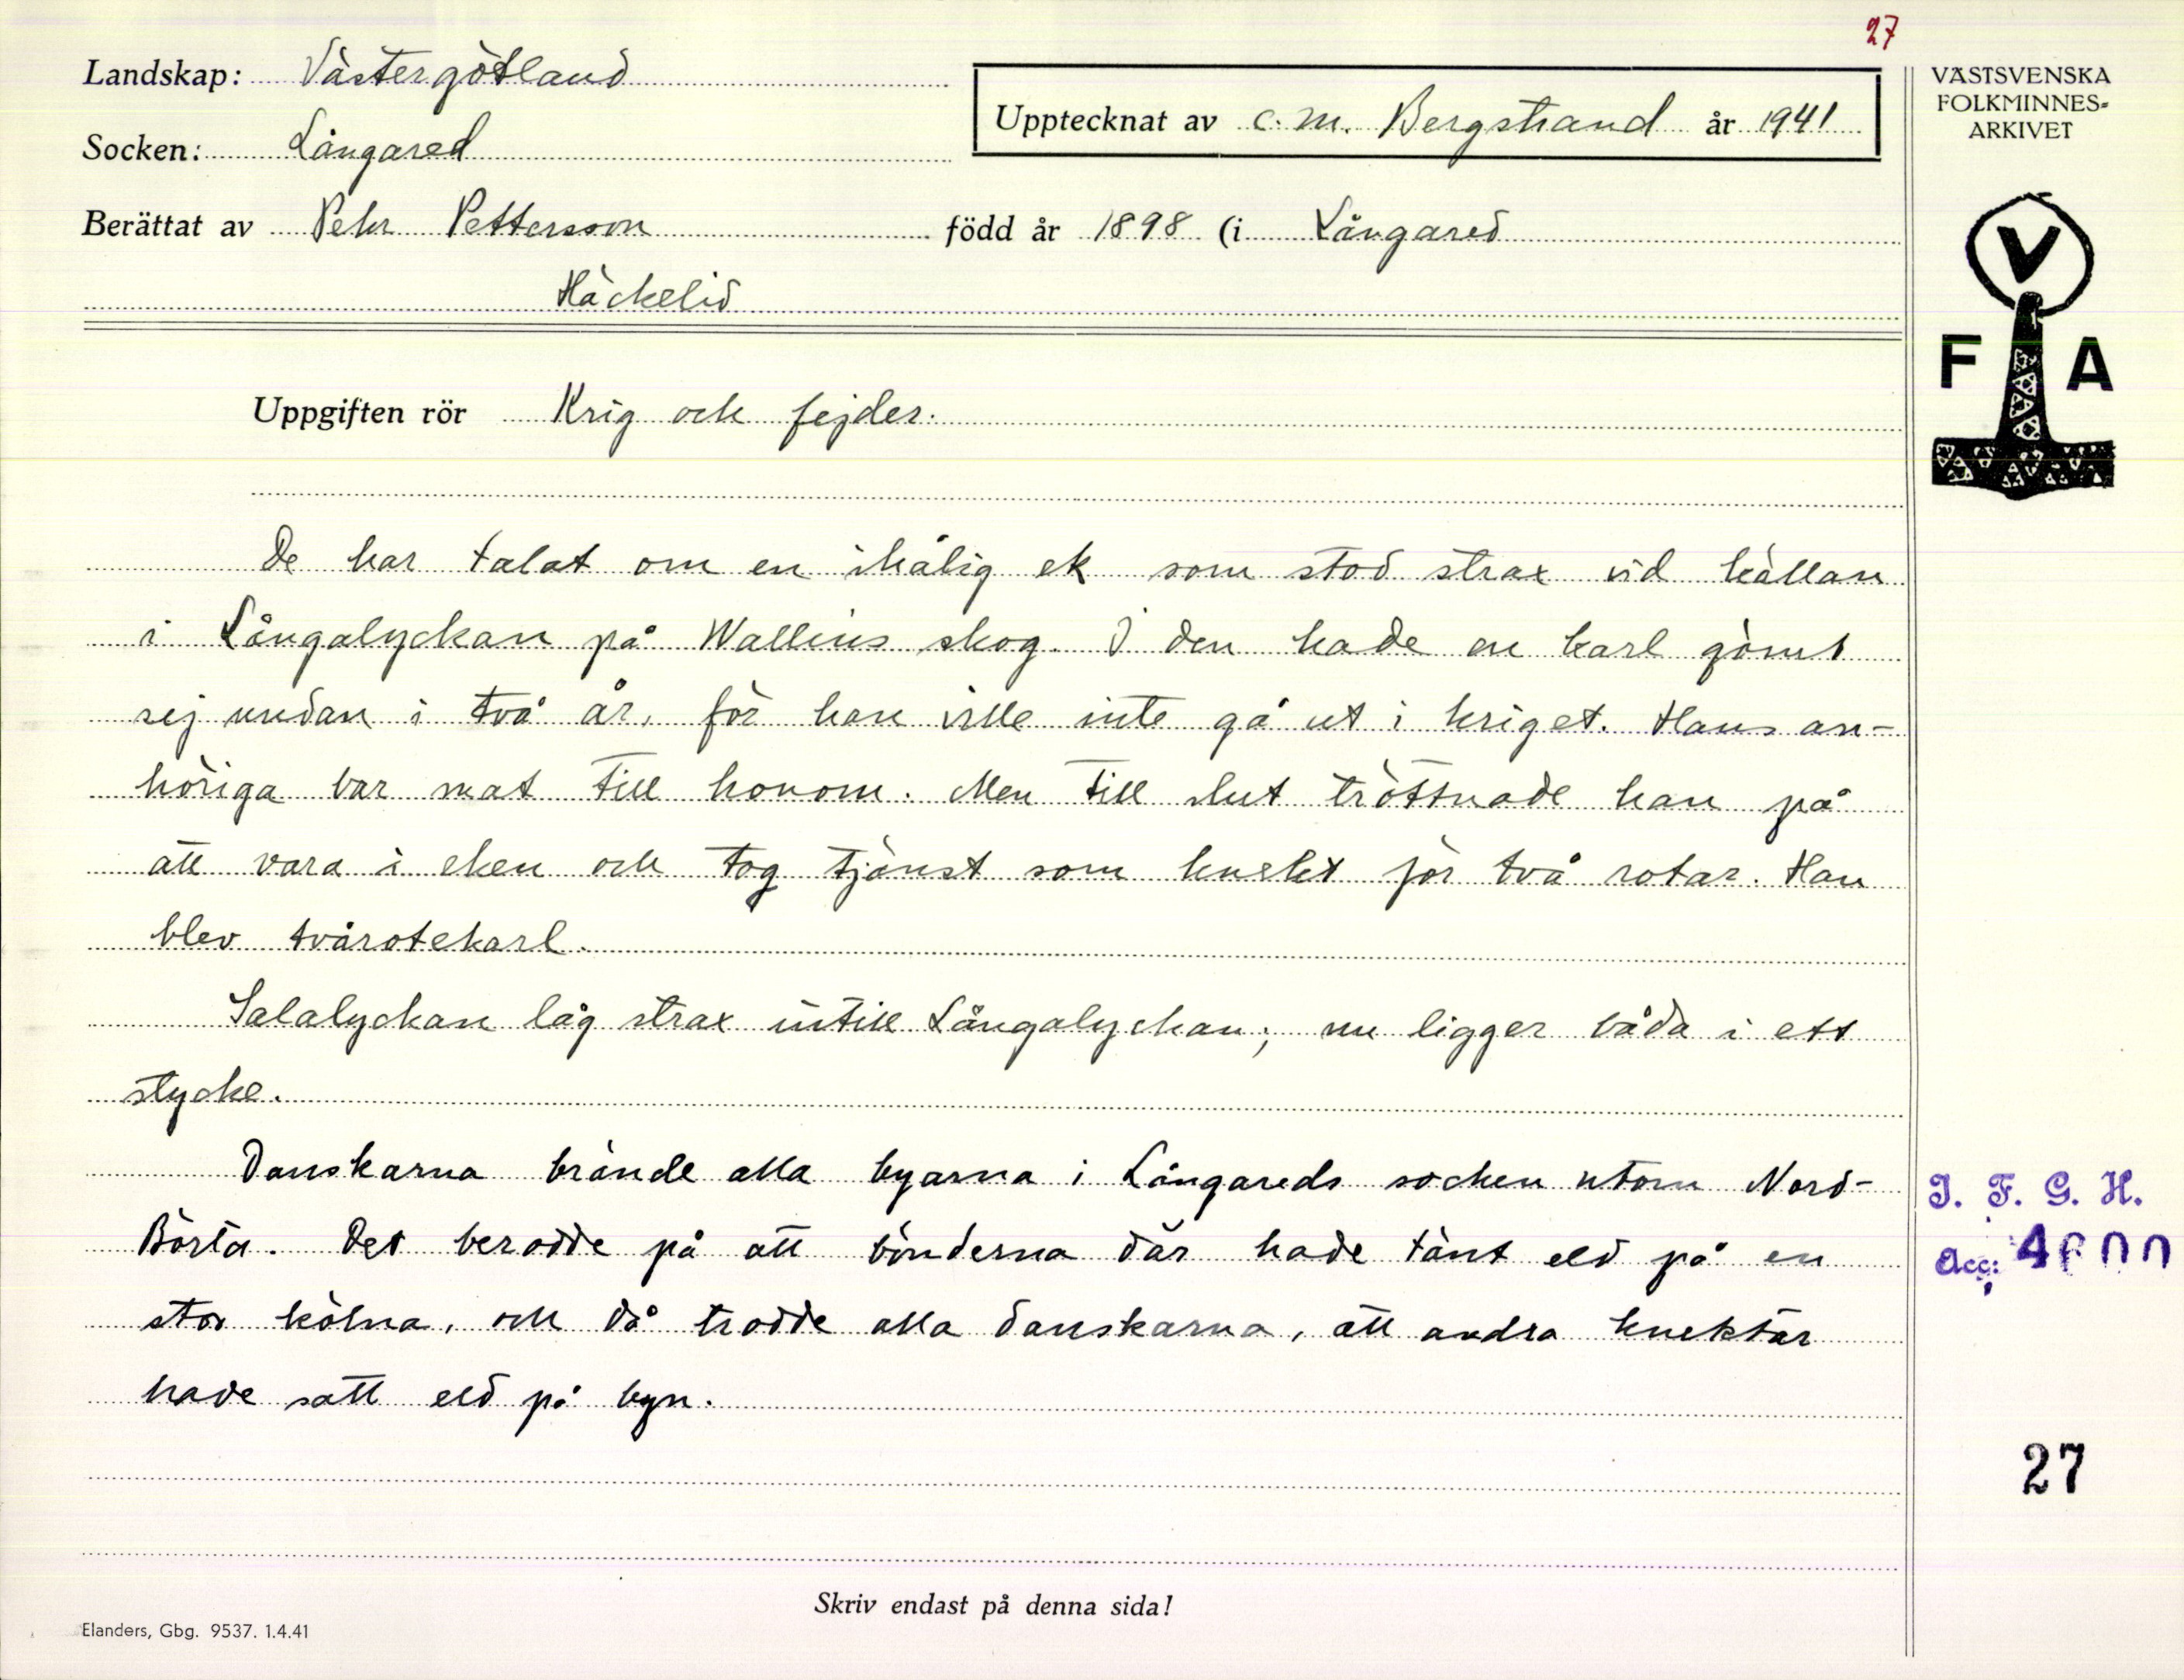 27
Landskap: Västergötland
Socken: Långared
Upptecknat av C. M. Bergstrand år 1941
Berättat av Pehr Pettersson född år 1898 (i Långared
Häckelid
VÄSTSVENSKA
FOLKMINNES-
ARKIVET
V
F A
Uppgiften rör Krig och fejder.
De har talat om en ihålig ek som stod strax vid källan
i Långalyckan på Wallins skog. I den hade en karl gömt
sej undan i två år, för han ville inte gå ut i kriget. Hans an-
höriga bar mat till honom. Men till slut tröttnade han på
att vara i eken och tog tjänst som knekt för två rotar. Han
blev tvårotekarl.
Salalyckan låg strax intill Långalyckan; nu ligger båda i ett
stycke.
Danskarna brände alla byarna i Långareds socken utom Nord-
Börta. Det berodde på att bönderna där hade tänt eld på en
stor kölna, och då trodde alla danskarna, att andra knektar
hade satt eld på byn.
I. F. G. H.
Acc:
27
Skriv endast på denna sida!
Elanders, Gbg. 9537. 1.4.41